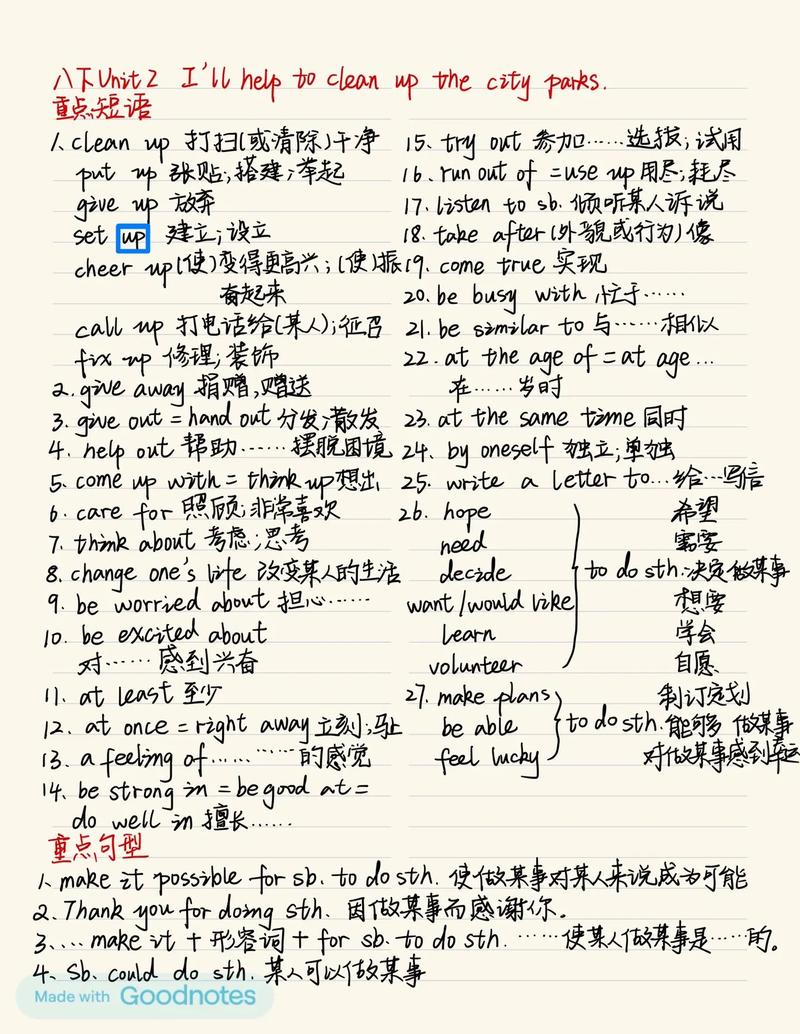 八下Unit 2 I'll help to clean up the city parks.
重点短语
1. clean up 打扫(或清除)干净
put up 张贴;搭建;举起
give up 放弃
set up 建立;设立
cheer up (使)变得更高兴;(使)振
奋起来
call up 打电话给(某人);征召
fix up 修理;装饰
2. give away 捐赠,赠送
3. give out = hand out 分发;散发
4. help out 帮助……摆脱困境
5. come up with = think up 想出
6. care for 照顾;非常喜欢
7. think about 考虑;思考
8. change one's life 改变某人的生活
9. be worried about 担心……
10. be excited about
对……感到兴奋
11. at least 至少
12. at once = right away 立刻;马上
13. a feeling of…… ……的感觉
14. be strong in = be good at =
do well in 擅长……
15. try out 参加……选拔;试用
16. run out of = use up 用尽;耗尽
17. listen to sb. 倾听某人诉说
18. take after (外貌或行为)像
19. come true 实现
20. be busy with 忙于……
21. be similar to 与……相似
22. at the age of = at age...
在……岁时
23. at the same time 同时
24. by oneself 独立;单独
25. write a letter to... 给…写信
26. hope 希望
need 需要
decide to do sth. 决定做某事
want/would like 想要
learn 学会
volunteer 自愿
27. make plans 制订定划
be able to do sth. 能够 做某事
feel lucky 对做某事感到幸运
重点句型
1. make it possible for sb. to do sth. 使做某事对某人来说成为可能
2. Thank you for doing sth. 因做某事而感谢你。
3. .... make it + 形容词 + for sb. to do sth. ……使某人做某事是……的。
4. Sb. could do sth. 某人可以做某事
Made with Goodnotes